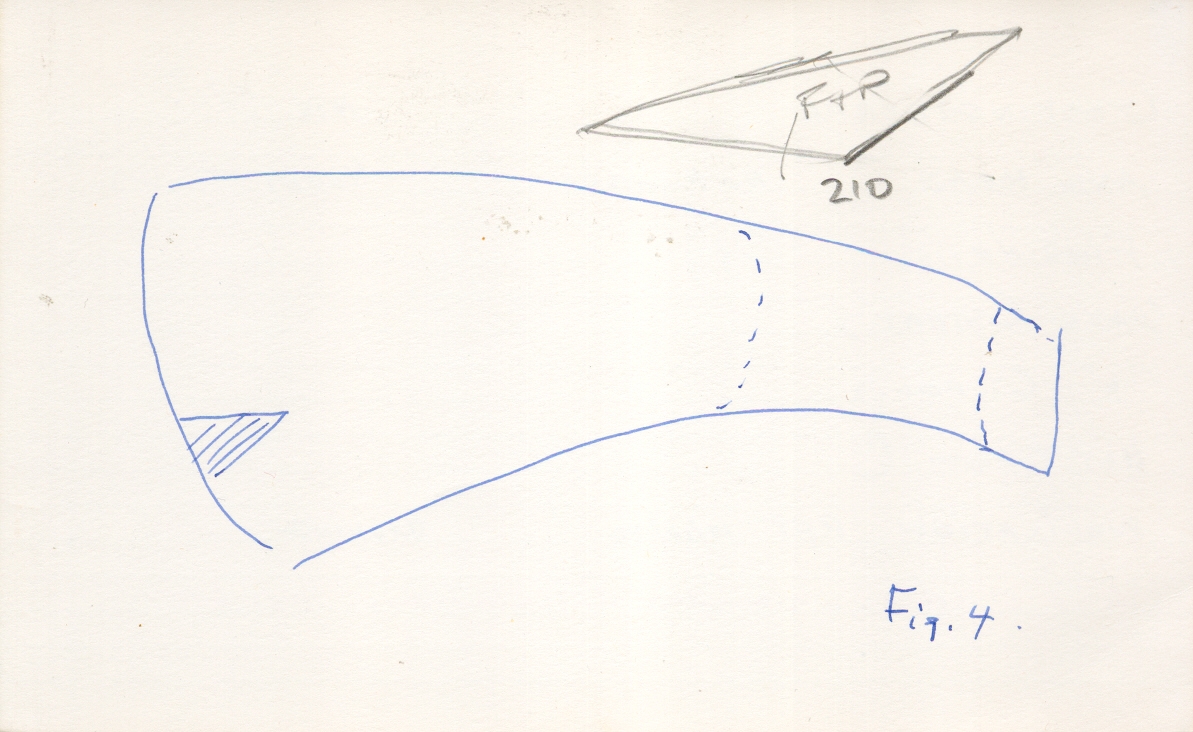 F+R
210
Fig. 4.